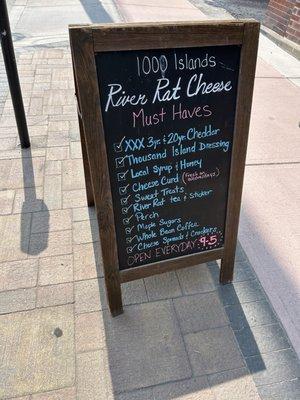 1000 Islands
River Rat Cheese
Must Haves
XXX 3yr. & 20yr. Cheddar
Thousand Island Dressing
Local Syrup & Honey
Cheese Curd (Fresh on Wednesdays)
Sweet Treats
River Rat tea & Sticker
Perch
Maple Sugars
Whole Bean Coffee
Cheese Spreads & Crackers
OPEN EVERYDAY 9-5